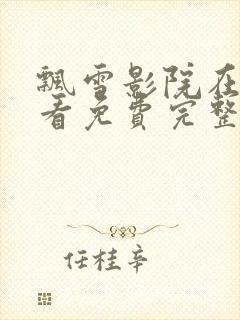 飘雪影院在
看免费完整
任桂辛